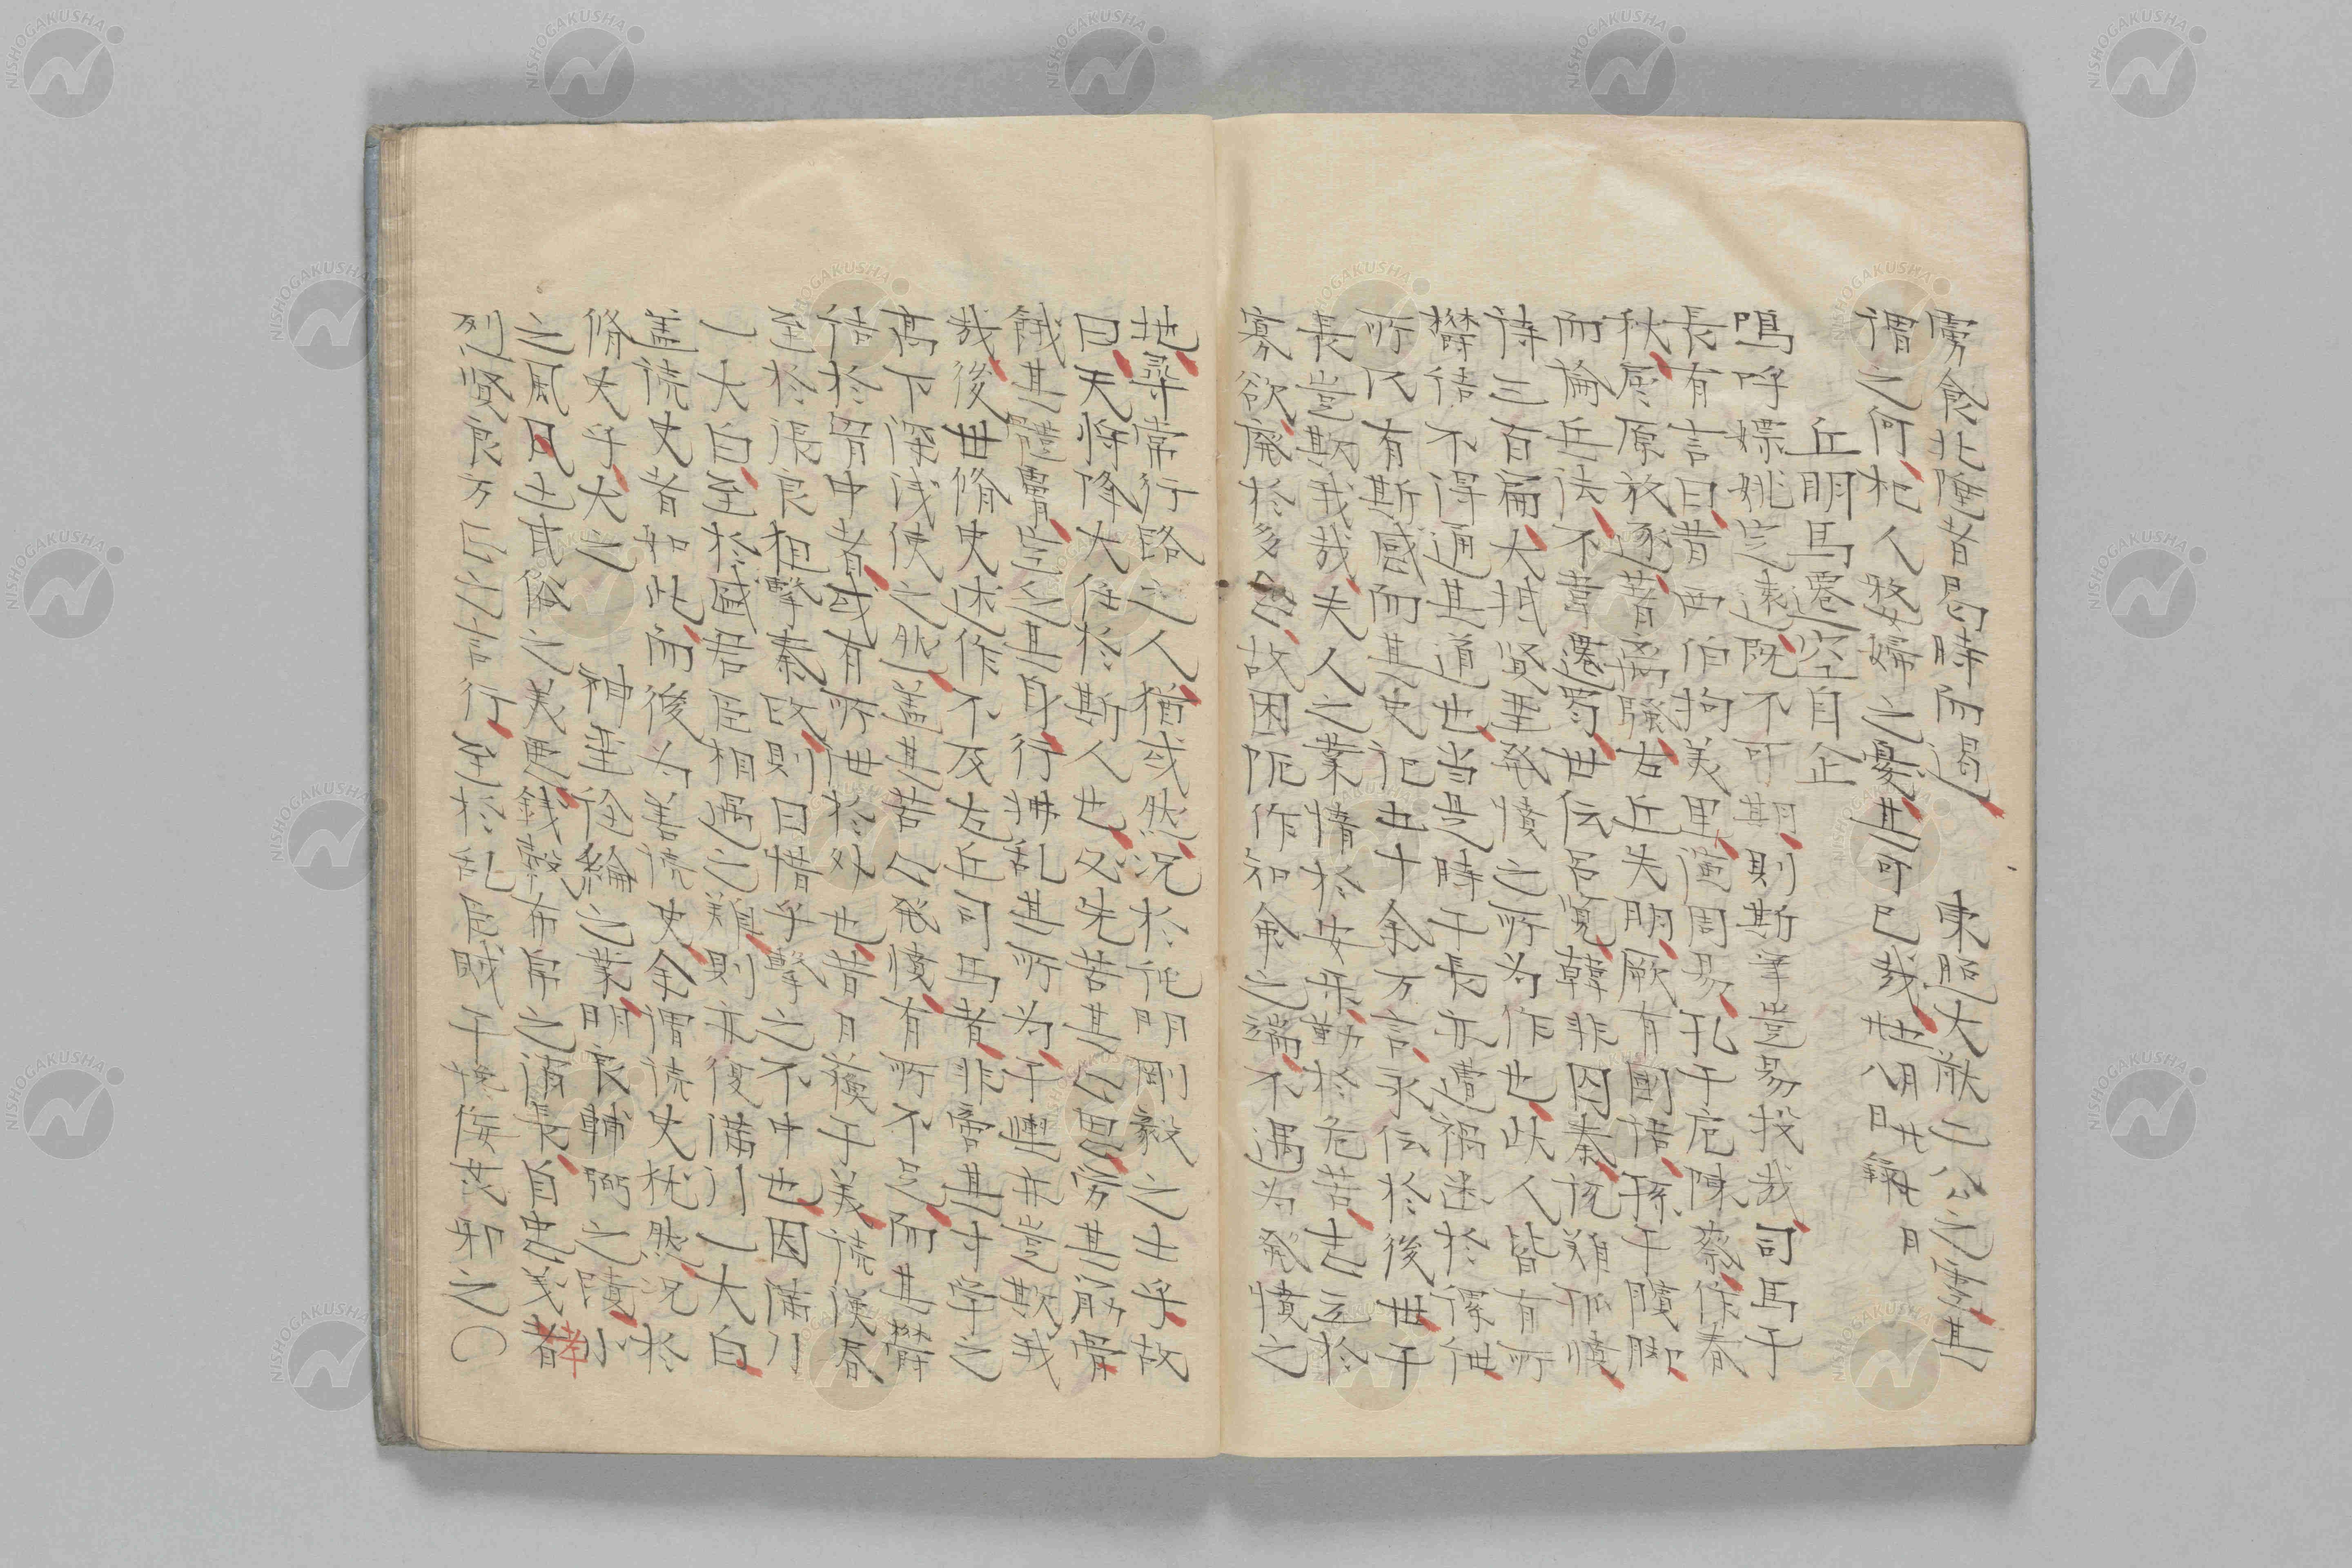 虜飲北陸者曷時而遏 東照大猷二公之霊其
謂之何杞人嫠婦之憂其可已哉
丘明馬遷空自企
嗚呼嫖姚定遠既不可期則斯筆豈易投哉司馬子
長有言曰昔西伯拘羑里演周易孔子厄陳蔡作春
秋屈原放逐著离騒左丘失明厥有國語孫子臏脚
而論兵法不韋遷蜀世伝呂覧韓非囚秦説難孤憤
詩三百扁大抵賢聖発憤之所為作也此人皆有所
欝結不得通其道也当是時子長亦遭禍迷於繆紲
所以有斯感而其史記五十余万言永伝於後世子
長豈欺我哉夫人之業情於安楽勤於危苦志立於
寡欲廃於多 故困阨作知命之端不遇為発憤之
地尋常行路之人猶或然況於従門剛毅之士乎故
曰天将降大任於斯人也必先苦其心思労其筋骨
餓其體膚空乏其身行拂乱其所為子輿亦豈欺我
哉後世脩史述作不及左丘司馬者非啻其才学之
高下深浅使之然蓋其苦心発憤有所不足而其欝
結於胷中者或有所世於外也昔日蘓子美読漢書
至於張良狙撃秦政則曰惜乎撃之不中也因満引
一大白至於國君臣相遇之難則亦復満引一大白
蓋読史者如此而後為善読史余謂読史枕然況於
脩史乎大之 神聖経綸之業明良輔弼之蹟小
之風凡土民俗之美思銭穀布帛之満長自忠義者
孝
列賢良方正之言行至於乱臣賊子 佞其邪之〇
NISHOGAKUSHA